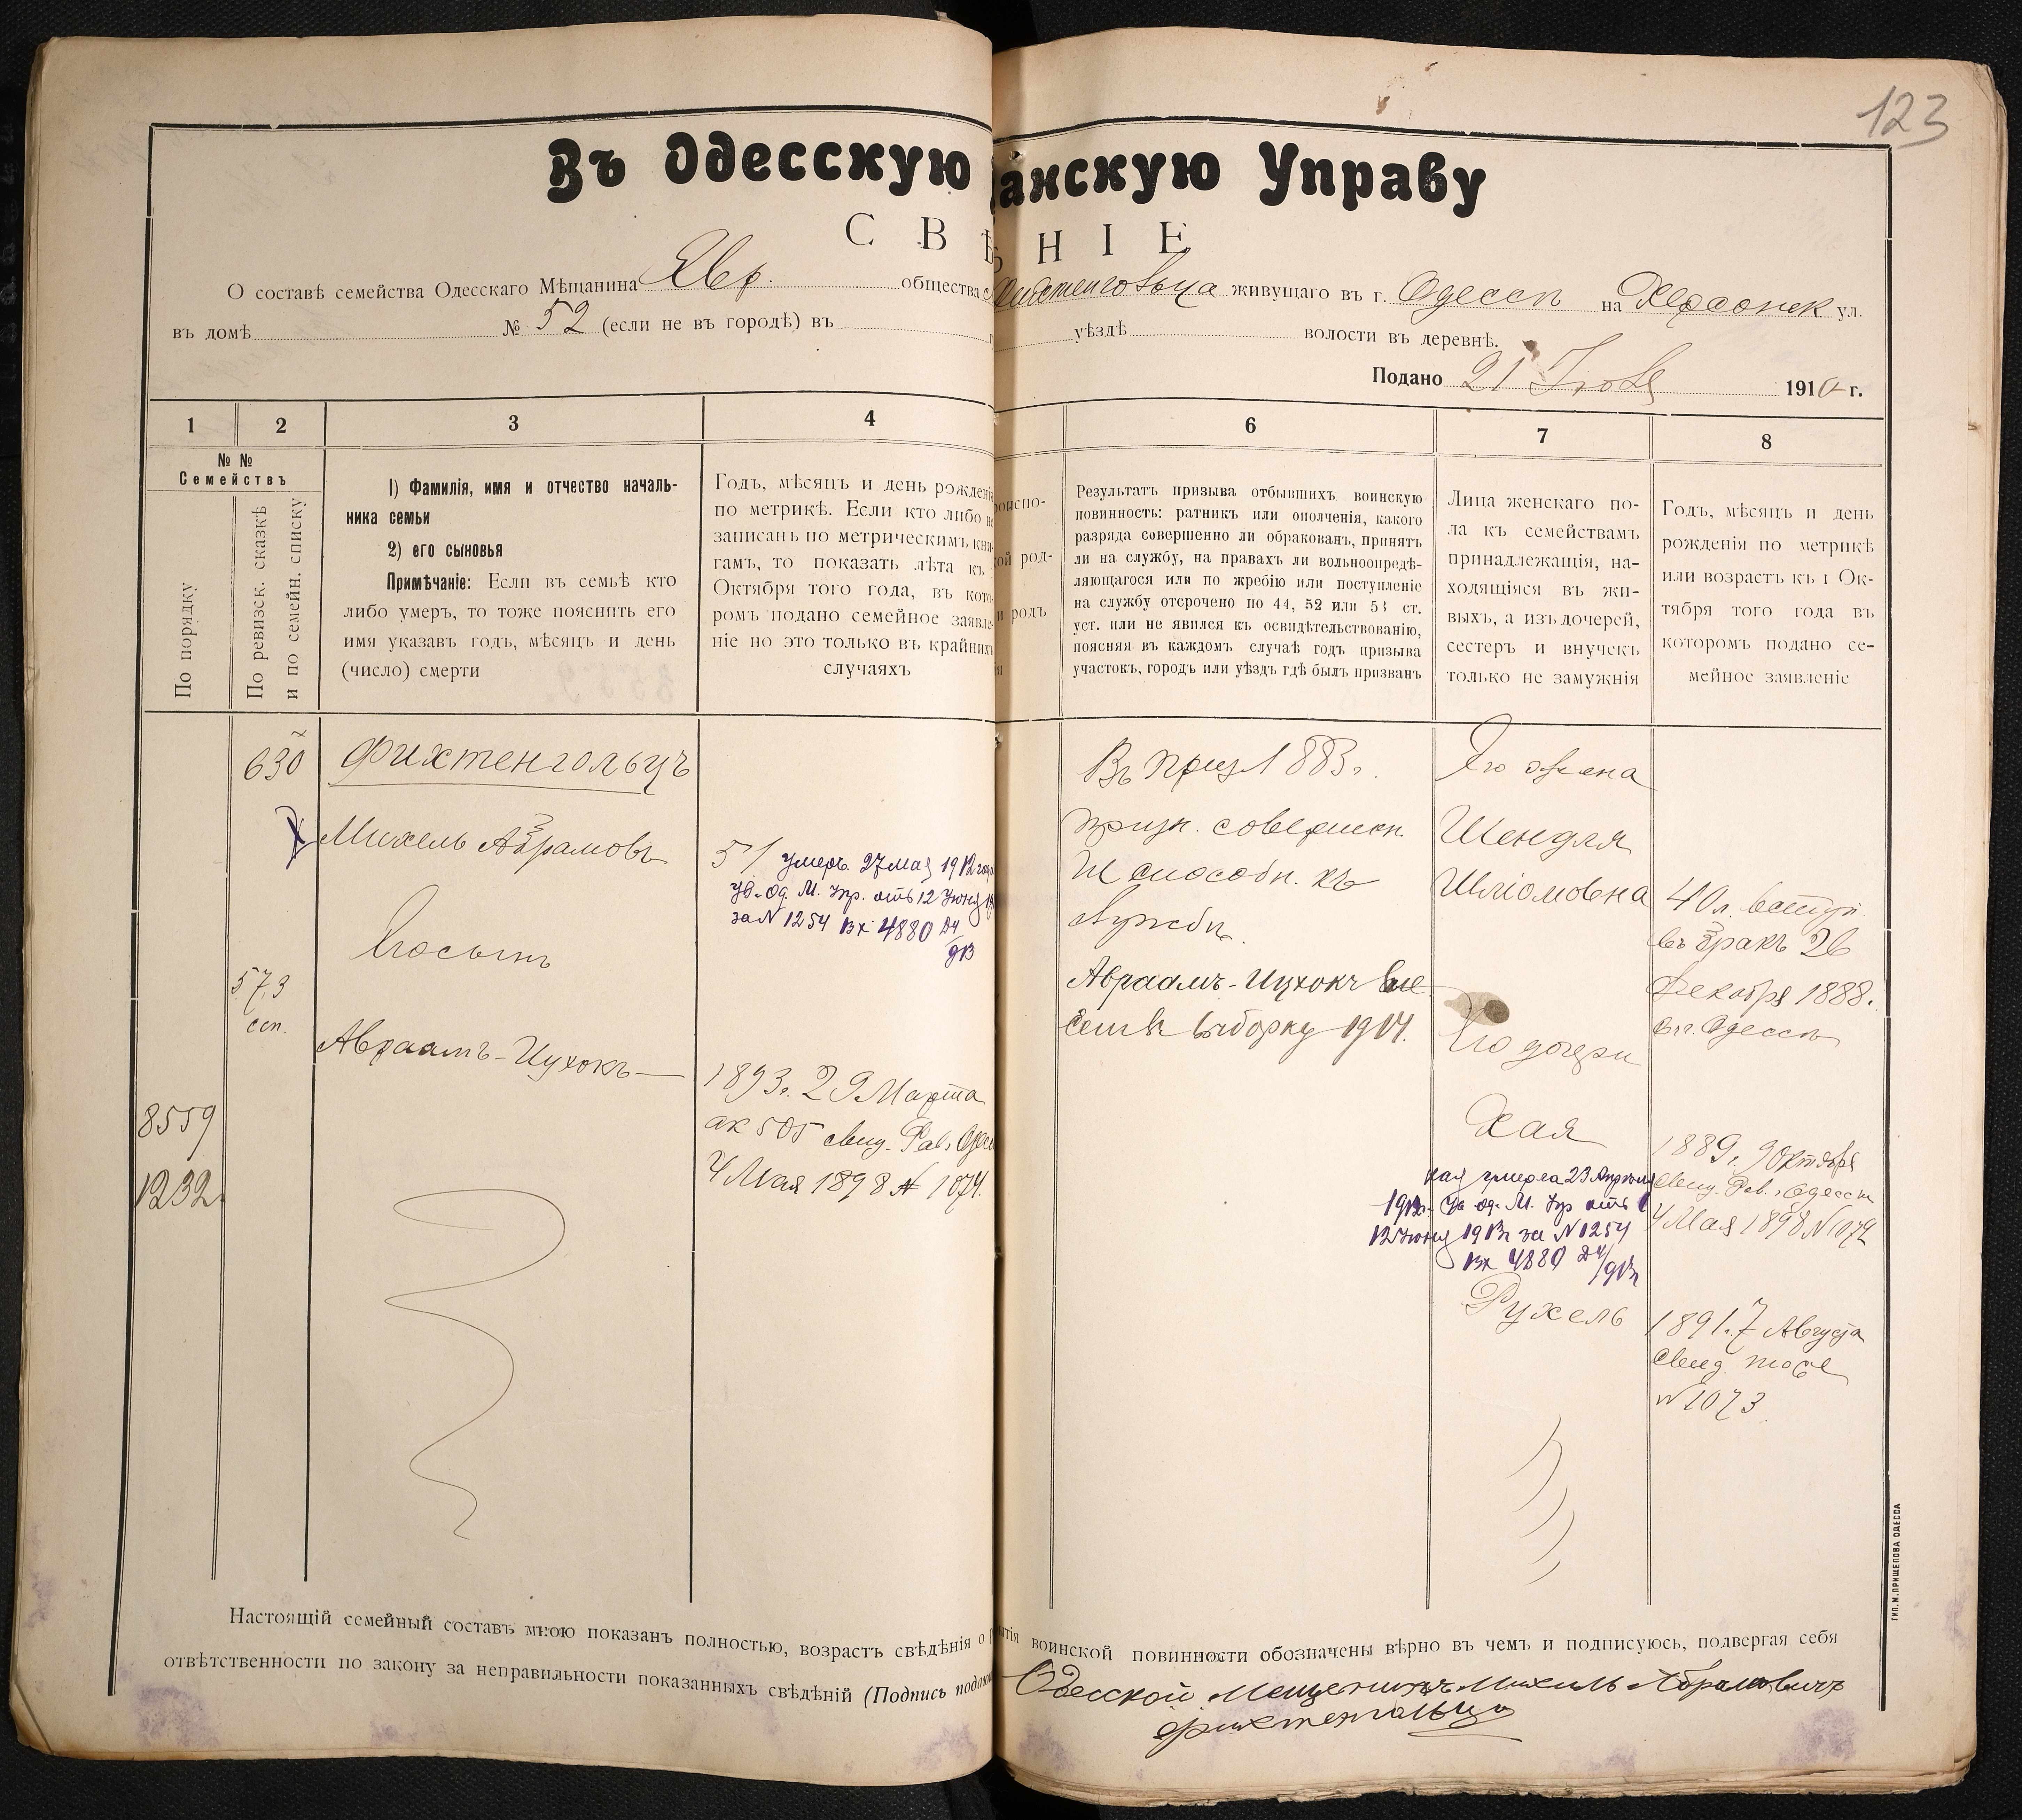 123
Въ Одесскую анскую Управу
СВѢ НІЕ
О составѣ семейства Одесскаго Мѣщанина Евр. общества Фихтенгольца живущаго въ г. Одессѣ на Херсонск ул.
въ домѣ № 52 (если не въ городѣ) въ уѣздѣ волости въ деревнѣ.
Подано 21 Іюля 1910 г.
1 2 3 4 6 7 8
№ №
Семействъ
По порядку
По ревизск. сказкѣ
и по семейн. списку
1) Фамилія, имя и отчество началь-
ника семьи
2) его сыновья
Примѣчаніе: Если въ семьѣ кто
либо умеръ, то тоже пояснить его
имя указавъ годъ, мѣсяцъ и день
(число) смерти
Годъ, мѣсяцъ и день рожденія
по метрикѣ. Если кто либо не
записанъ по метрическимъ кни-
гамъ, то показать лѣта къ 1
Октября того года, въ кото-
ромъ подано семейное заявле-
ніе но это только въ крайнихъ
случаяхъ
роисхо-
ой род-
и родъ
ія
Результатъ призыва отбывшихъ воинскую
повинность: ратникъ или ополченія, какого
разряда совершенно ли обракованъ, принятъ
ли на службу, на правахъ ли вольноопредѣ-
ляющагося или по жребію или поступленіе
на службу отсрочено по 44, 52 или 53 ст.
уст. или не явился къ освидѣтельствованію,
поясняя въ каждомъ случаѣ годъ призыва
участокъ, городъ или уѣздъ гдѣ былъ призванъ
Лица женскаго по-
ла къ семействамъ
принадлежащія, на-
ходящіяся въ жи-
выхъ, а изъ дочерей,
сестеръ и внучекъ
только не замужнія
Годъ, мѣсяцъ и день
рожденія по метрикѣ
или возрастъ къ 1 Ок-
тября того года въ
которомъ подано се-
мейное заявленіе
630
Фихтенгольцъ
Михель Абрамовъ
51 умеръ 27 мая 1912 года
ув. Од. М. Упр. отъ 12 Іюня 19
за N 1254 Вх 4880 24
913
Его сынъ
573
сеп.
Авраамъ-Ицхокъ
1893 г. 29 Марта
ак 505 свид. Рав. Одес
4 Мая 1898 № 1074.
8559
1232
Въ приз 1883 г.
призн. совершен.
не способн. къ
службѣ.
Авраамъ-Ицхокъ вне
сенъ въ выборку 1914.
Его жена
Шендля
Шліомовна
40 л. вступ.
въ бракъ 26
Декабря 1888.
въ г. Одессѣ
Его дочери
Хая
1889 г. 9 Октября
свид. Рав. г. Одессы
4 Мая 1898 N 1072
Хая умерла 23 Апреля
1912 г. Ув Од. М. Упр отъ
12 Іюня 1913 г за N 1254
Вх 4880 24/913 г
Рухель
1891 г. 7 Августа
свид. тоже
N 1073
Настоящій семейный составъ мною показанъ полностью, возрастъ свѣдѣнія о тія воинской повинности обозначены вѣрно въ чемъ и подписуюсь, подвергая себя
отвѣтственности по закону за неправильности показанныхъ свѣдѣній (Подпись подаю
Одесской Мещенинъ Михель Абрамовичъ
Фихтенгольцъ
ТИП. М. ПРИЩЕПОВА ОДЕССА